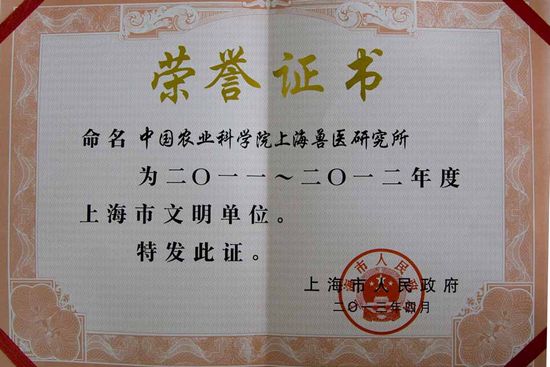 荣誉证书
命名 中国农业科学院上海兽医研究所
为二〇一一～二〇一二年度
上海市文明单位。
特发此证。
上海市人民政府
二〇一三年四月